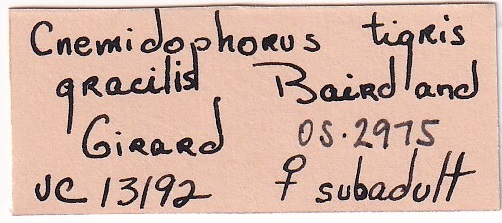 Cnemidophorus tigris
gracilis Baird and
Girard OS·2975
UC 13192 ♀ subadult